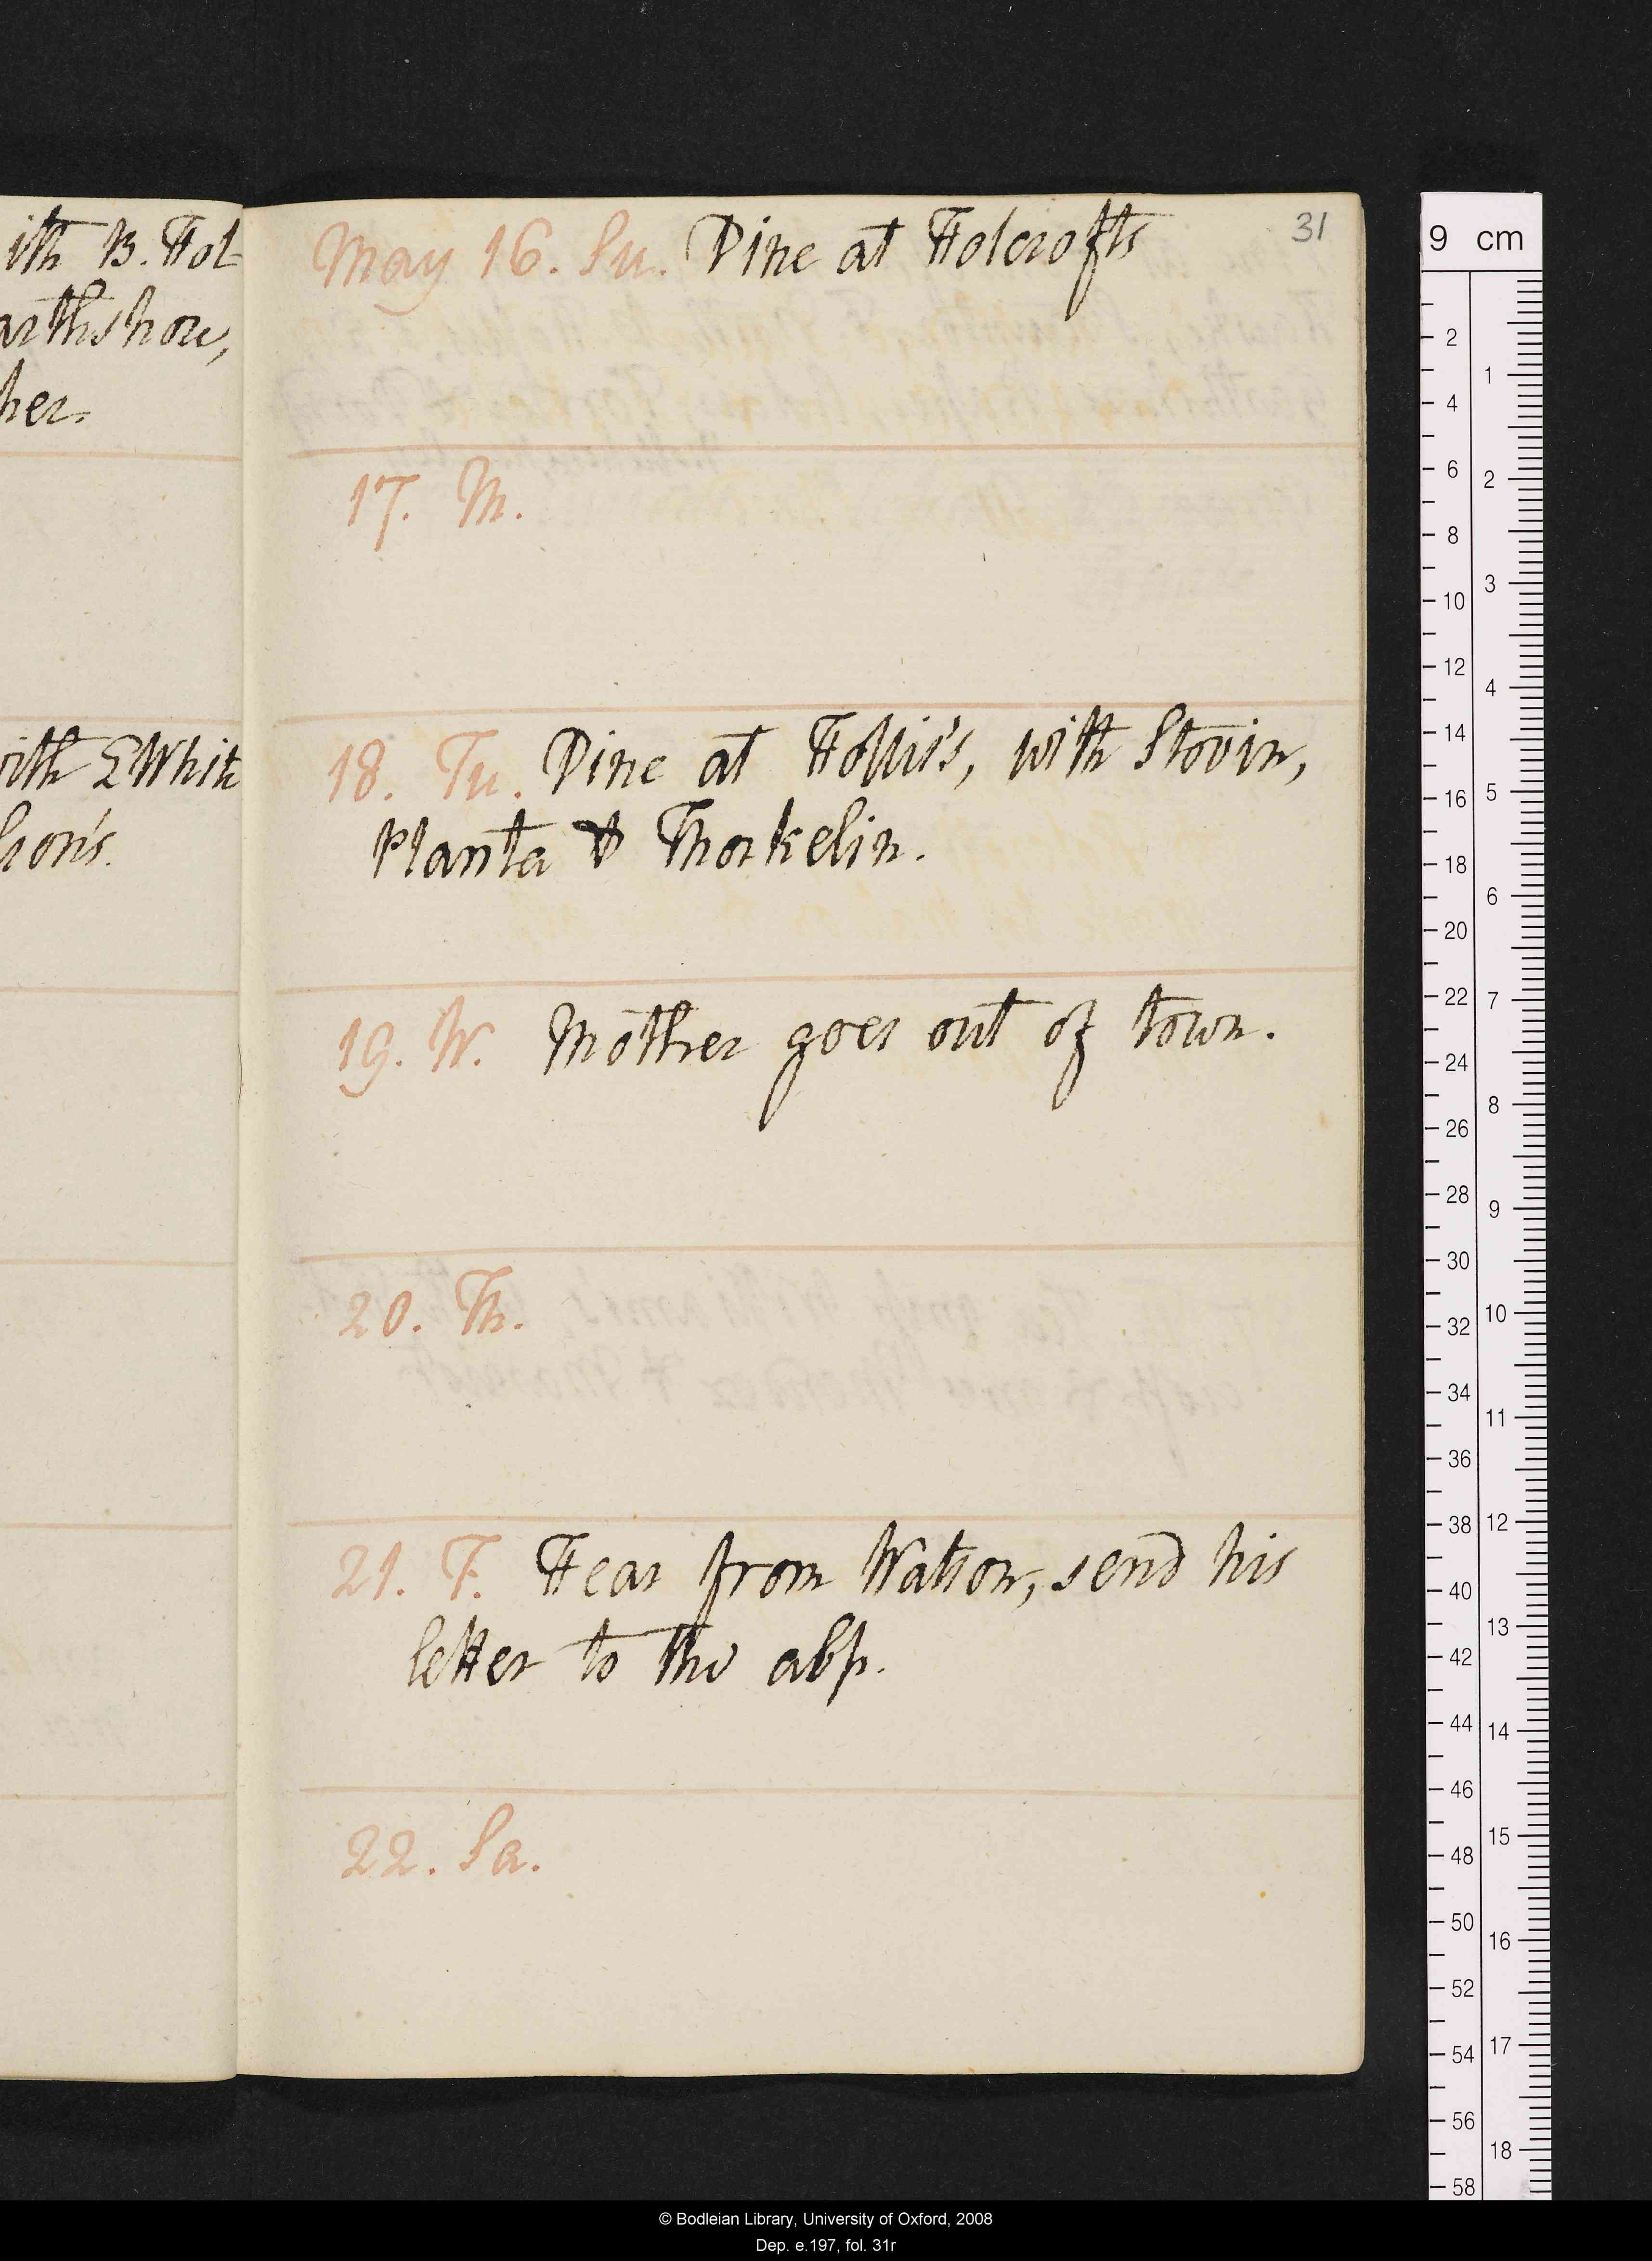 ith B. Hol
arthshore,
her.
ith E White
son's.
31
May 16. Su. Dine at Holcrofts
17. M.
18. Tu. Dine at Hollis's, with Stovin,
Planta & Thorkelin.
19. W. Mother goes out of town.
20. Th.
21. F. Hear from Watson, send his
letter to the abp.
22. Sa.
9 cm
2
4
6
8
10
12
14
16
18
20
22
24
26
28
30
32
34
36
38
40
42
44
46
48
50
52
54
56
58
1
2
3
4
5
6
7
8
9
10
11
12
13
14
15
16
17
18
© Bodleian Library, University of Oxford, 2008
Dep. e.197, fol. 31r